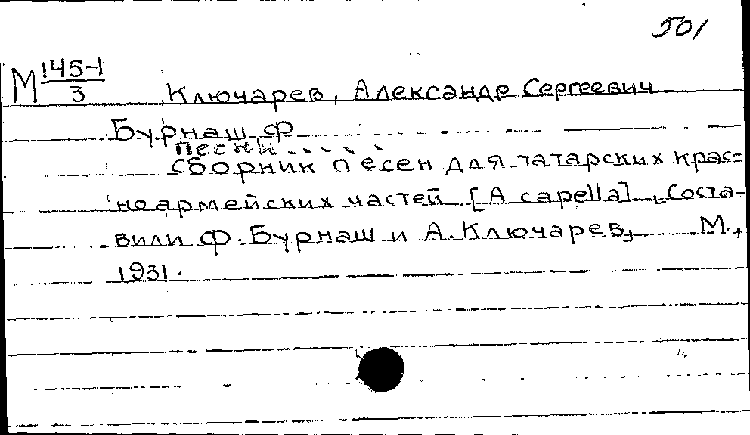 501
М 145-1/3 Ключарев, Александр Сергеевич
Бурнаш, Ф.
Песни.....
Сборник песен для татарских крас=
ноармейских частей [A capella]. Соста-
вили Ф. Бурнаш и А. Ключарев, М.,
1931.